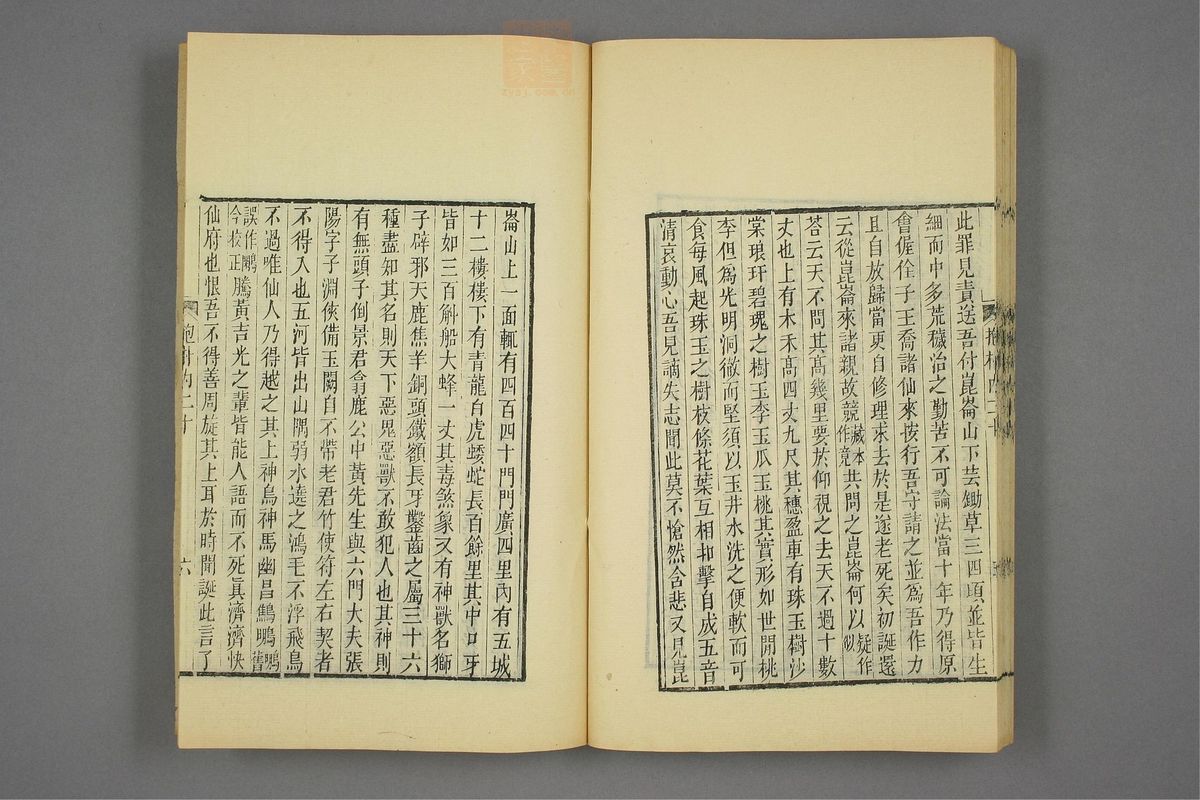 此罪見責送吾付崑崙山下芸鋤草三四頃並皆生
細而中多荒穢治之勤苦不可論法當十年乃得原
會偓佺子王喬諸仙來按行吾守請之並為吾作力
且自放歸當更自修理求去於是遂老死矣初誕還
云從崑崙來諸親故競藏本作竟共問之崑崙何以疑作似
荅云天不問其高幾里要於仰視之去天不過十數
丈也上有木禾高四丈九尺其穗盈車有珠玉樹沙
棠琅玕碧瑰之樹玉李玉瓜玉桃其實形如世間桃
李但為光明洞徹而堅須以玉井水洗之便軟而可
食每風起珠玉之樹枝條花葉互相扣擊自成五音
清哀動心吾見謫失志聞此莫不愴然含悲又見崑
崙山上一面輒有四百四十門門廣四里內有五城
十二樓樓下有青龍白虎蜲蛇長百餘里其中口牙
皆如三百斛船大蜂一丈其毒煞象又有神獸名獅
子辟邪天鹿焦羊銅頭鐵額長牙鑿齒之屬三十六
種盡知其名則天下惡鬼惡獸不敢犯人也其神則
有無頭子倒景君翕鹿公中黃先生與六門大夫張
陽字子淵俠備玉闕自不帶老君竹使符左右契者
不得入也五河皆出山隅弱水遶之鴻毛不浮飛鳥
不過唯仙人乃得越之其上神鳥神馬幽昌鷦鵬鵬舊
誤作鷳今校正騰黃吉光之輩皆能人語而不死真濟濟快
仙府也恨吾不得善周旋其上耳於時聞誕此言了
抱朴內二十
六